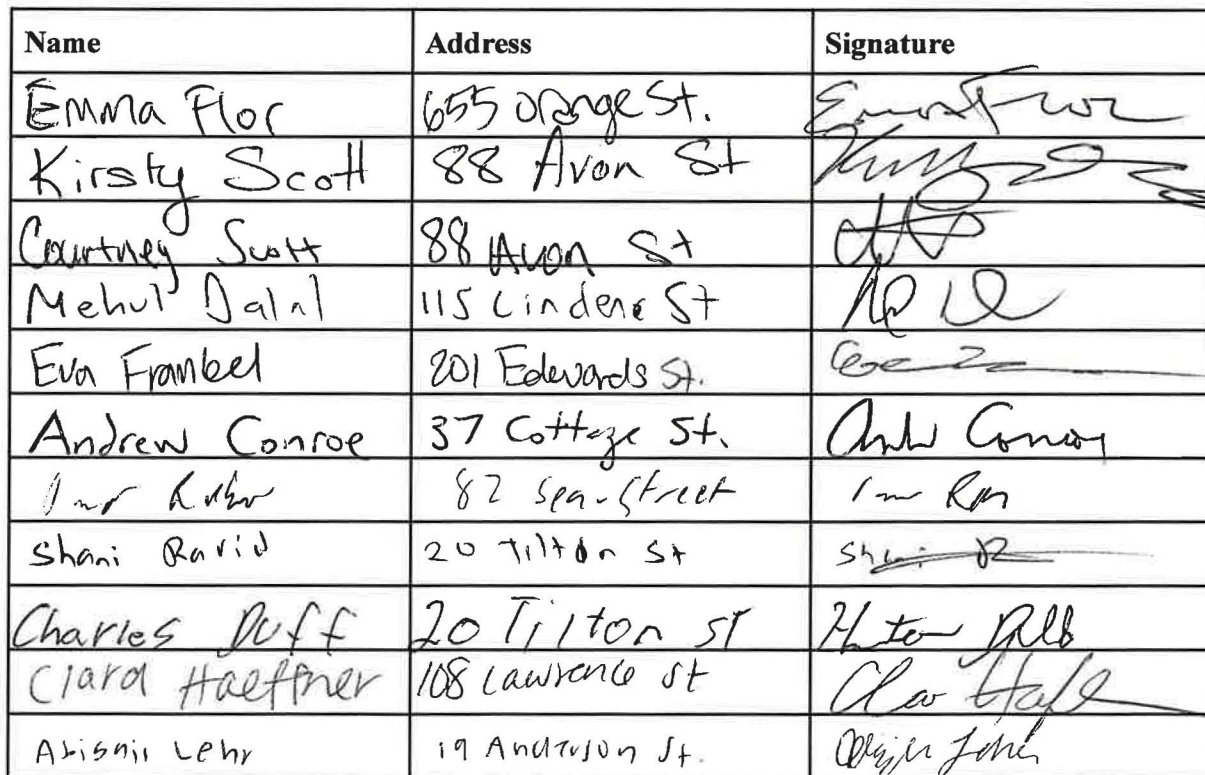 Name Address Signature
Emma Flor 655 Orange St. Emma Flor
Kirsty Scott 88 Avon St
Courtney Scott 88 Avon St
Mehul Dalal 115 Linden St
Eva Frankel 201 Edwards St.
Andrew Conroe 37 Cottage St.
82 Street
Shani Ravid 20 Tilton St Shani R
Charles Duff 20 Tilton ST
Clara Haeffner 108 Lawrence St
Abigail Lehr 19 Anderson St.